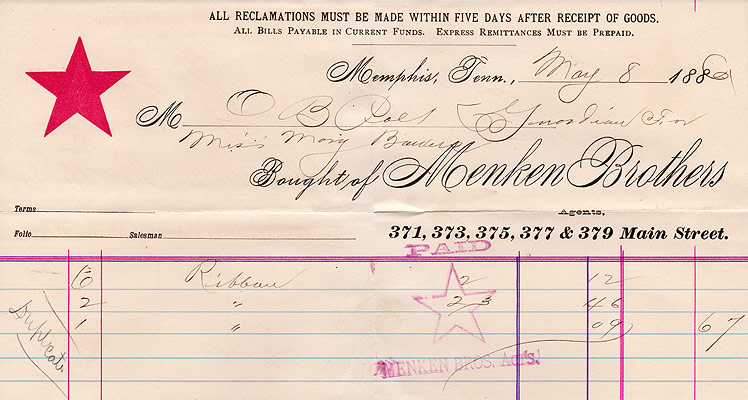 ALL RECLAMATIONS MUST BE MADE WITHIN FIVE DAYS AFTER RECEIPT OF GOODS.
ALL BILLS PAYABLE IN CURRENT FUNDS. EXPRESS REMITTANCES MUST BE PREPAID.
Memphis, Tenn., May 8 188
M O B Polk Guardian For
Miss Mary
Bought of Menken Brothers
Terms
Agents,
Folio Salesman
371, 373, 375, 377 & 379 Main Street.
PAID
6 Ribbon 2 12
2 " 23 46
1 " 09 67
Duplicate
MENKEN BROS. Acts.